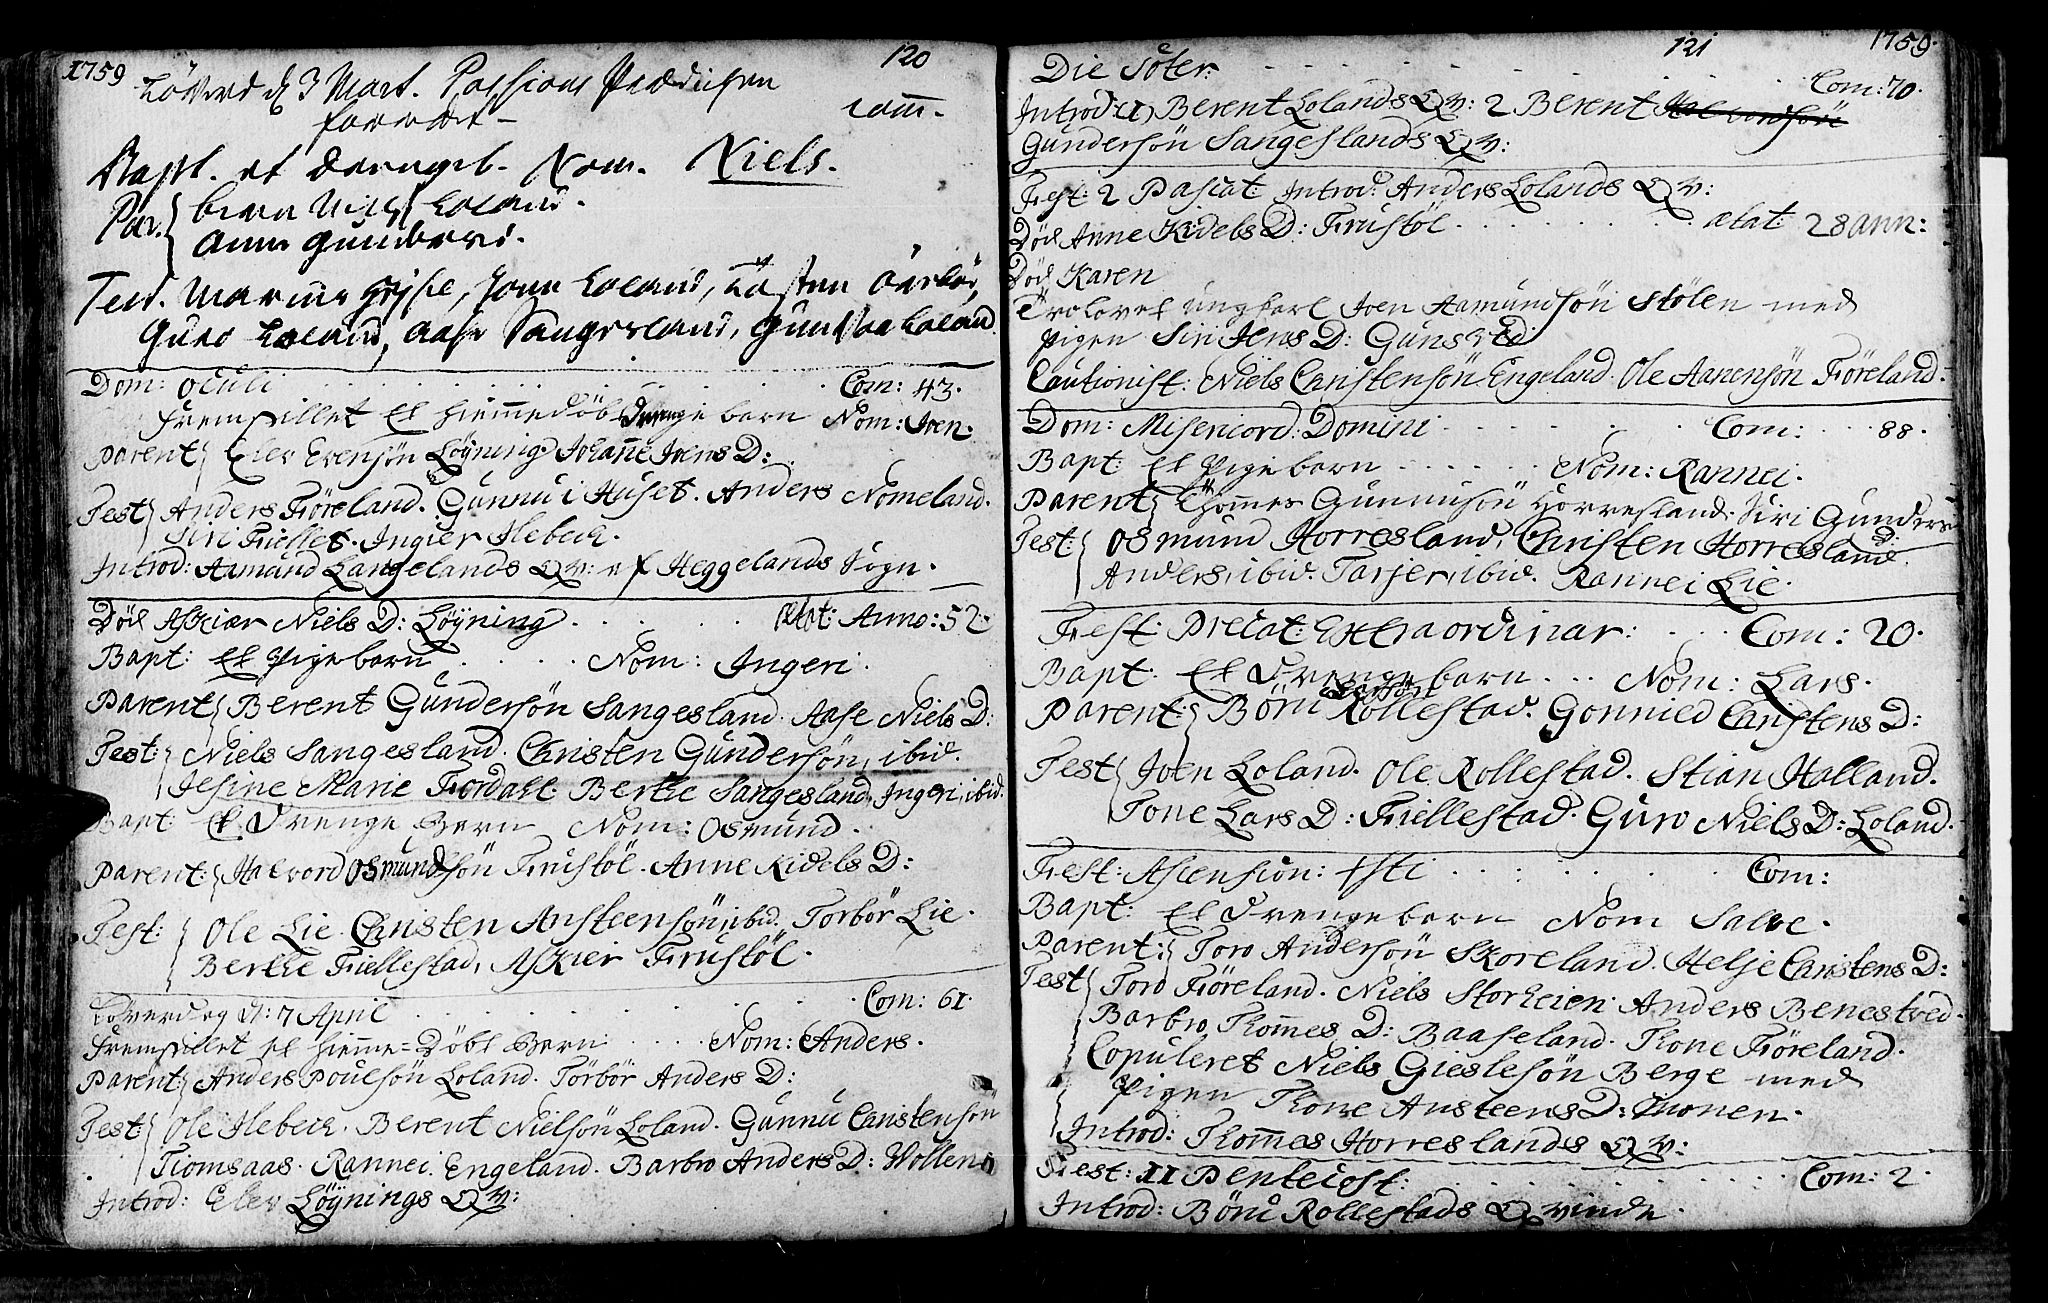 1759
120
Løverd d 3 Mart. Passions Prædichen
forrett
Com̄.
Bapt. et drengeb. Nom. Niels.
Par. { Loland.
Anne
Test. Loland,
Guro Loland, Aase Sangesland, Loland
Dom: Oculi . . . Com: 43.
Fremstillet et hiemmedøbt Drenge barn Nom: Joen.
Parent { Elev Evensøn Løyning. Johan̄e Joens D:
Test { Anders Fiöreland. Gunnu i Huset. Anders Nomeland.
Siri Ingier Ilebeck.
Introd: Aamund Langelands Qv: af Heggelands Sogn.
Död Askier Niels D: Løyning . . . ætat: Anno: 52.
Bapt: et Pigebarn . . . Nom: Ingeri.
Parent { Berent Gundersön Sangesland. Aase Niels D:
Test: { Niels Sangesland. Christen Gundersön, ibid.
Jesine Marie Berthe Sangesland, Ingeri, ibid.
Bapt: Et Drenge Barn Nom: Osmund.
Parent: { Halvord Osmundsön Frustöl. Anne Kidels D:
Test: { Ole Lie. Christen Ansteensön, ibid. Torbör Lie.
Berthe Fiellestad, Askier Frustöl.
Löverdag d: 7 April . . . Com: 61.
Fremstillet et hiemme=Döbt Barn . . . Nom: Anders.
Parent: { Anders Poulsön Loland. Törbör Anders D:
Test { Ole Ilebeck. Berent Nielsön Loland. Gunnu Christensön
Tiomsaas. Rannei Engeland. Barbro Anders D: Hollen
Introd: Elev Løynings Qv:
121
1759.
Die . . . Com: 70.
Introd: 1) Berent Lolands Qv: 2 Berent
Gundersön Sangeslands Qv:
Fest: 2 Pascat: Introd: Anders Lolands Qv:
Död Anne Kidels D: Frustöl . . . ætat: 28 ann:
Död Karen
Trolovet ungkarl Joen Aamundsön Stölen med
pigen Siri Jens D:
Cautionist: Niels Christensön Engeland. Ole Aanensön Fiöreland.
Dom: Misericord: Domini . . . Com: . . . 88.
Bapt: et Pigebarn . . . Nom: Rannei.
Parent { Thom̄es Gunnusön Horresland. Siri Gunders D:
Test: { Osmund Horresland, Christen Horresland.
Anders, ibid. Tarjer, ibid. Rannei Lie.
Fest: Precat: Extraordinar: . . . Com: 20.
Bapt: Et Drengebarn . . . Nom: Lars.
Larsön
Parent: { Börü Rollestad. Gonnied Christens D:
Test { Joen Loland. Ole Rollestad. Stian Halland.
Tone Lars D: Fiellestad. Guro Niels D: Loland.
Fest: Ascension: Xsti . . . Com:
Bapt: Et Drengebarn Nom Salve.
Parent: { Toro Andersön Skoreland. Helje Christens D:
Test { Toro Fiöreland. Niels Storheien. Anders Benestved.
Barbro Thom̄es D: Baaseland. Thone Fiöreland.
Copuleret Niels Gieslesön Berge med
Pigen Thone Ansteens D: Monen.
Introd: Thom̄es Horreslands Qv:
Fest: II Penteiost: . . . Com: 2.
Introd: Börü Rollestads Qvinde.